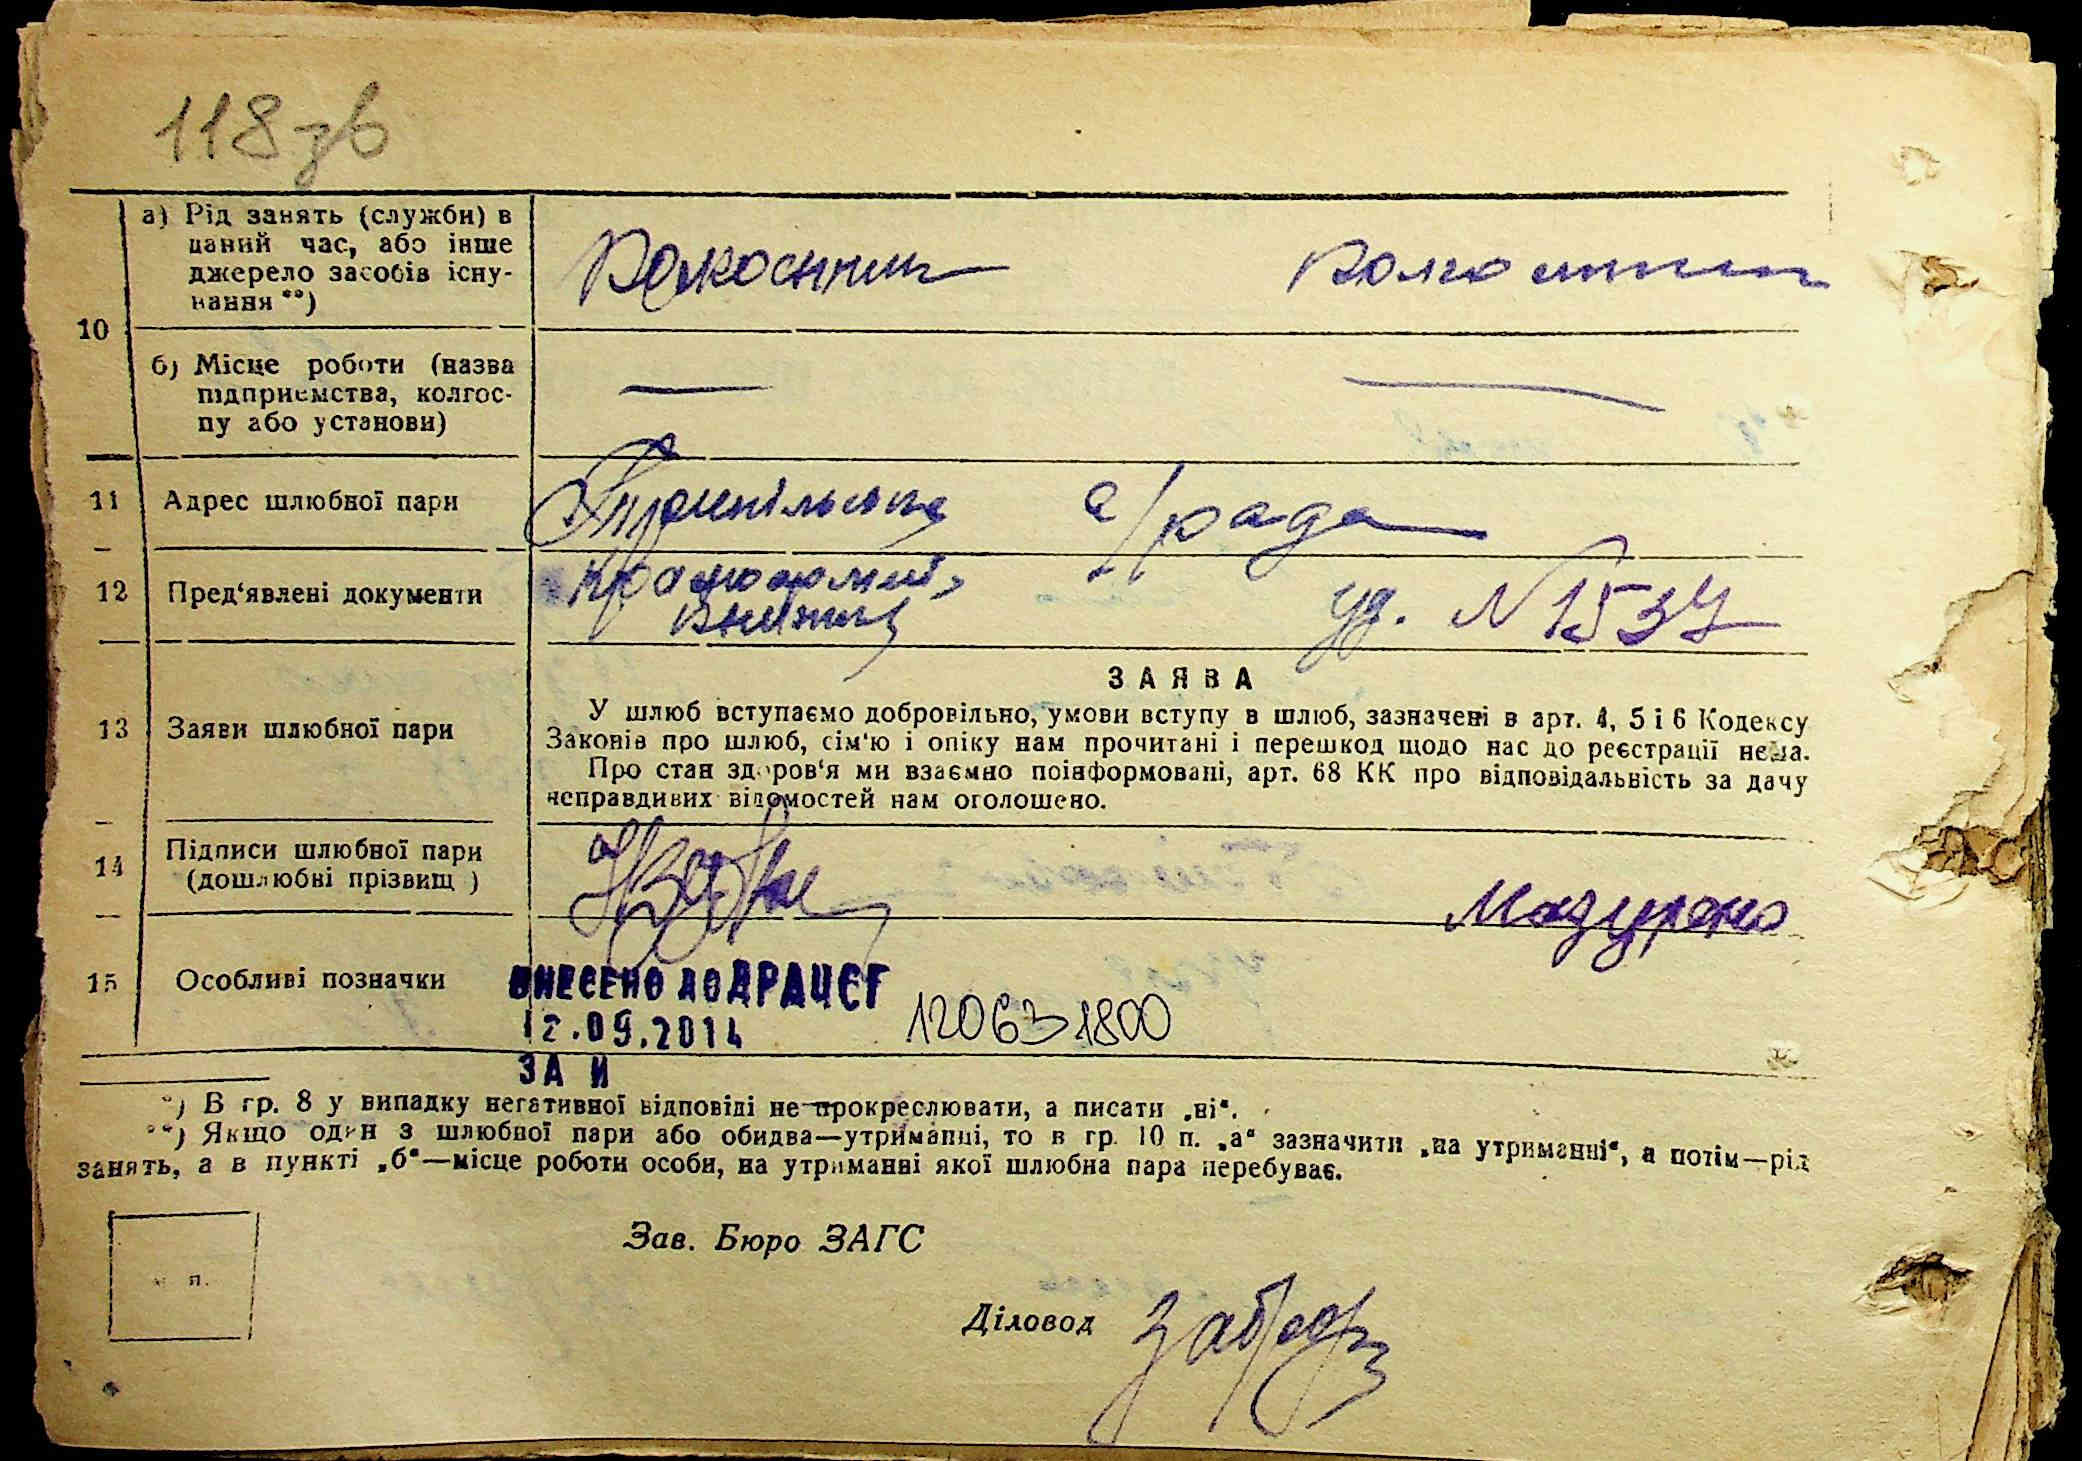 118 зв
а) Рід занять (служби) в
даний час, або інше
джерело засобів існу-
вання **)
10
б) Місце роботи (назва
підприємства, колгос-
пу або установи)
—
—
11 Адрес шлюбної пари
с/рада
12 Пред'явлені документи
уд. N 1537
ЗАЯВА
13 Заяви шлюбної пари
У шлюб вступаємо добровільно, умови вступу в шлюб, зазначені в арт. 4, 5 і 6 Кодексу
Законів про шлюб, сім'ю і опіку нам прочитані і перешкод щодо нас до реєстрації нема.
Про стан здоров'я ми взаємно поінформовані, арт. 68 КК про відповідальність за дачу
неправдивих відомостей нам оголошено.
14 Підписи шлюбної пари
(дошлюбні прізвищ )
Мазурено
15 Особливі позначки
ВНЕСЕНО ДО ДРАЦСГ
12.09.2014 120631800
ЗА И
*) В гр. 8 у випадку негативної відповіді не прокреслювати, а писати „ні“.
**) Якщо один з шлюбної пари або обидва—утриманці, то в гр. 10 п. „а“ зазначити „на утриманні“, а потім—рід
занять, а в пункті „б“—місце роботи особи, на утриманні якої шлюбна пара перебуває.
Зав. Бюро ЗАГС
м п.
Діловод